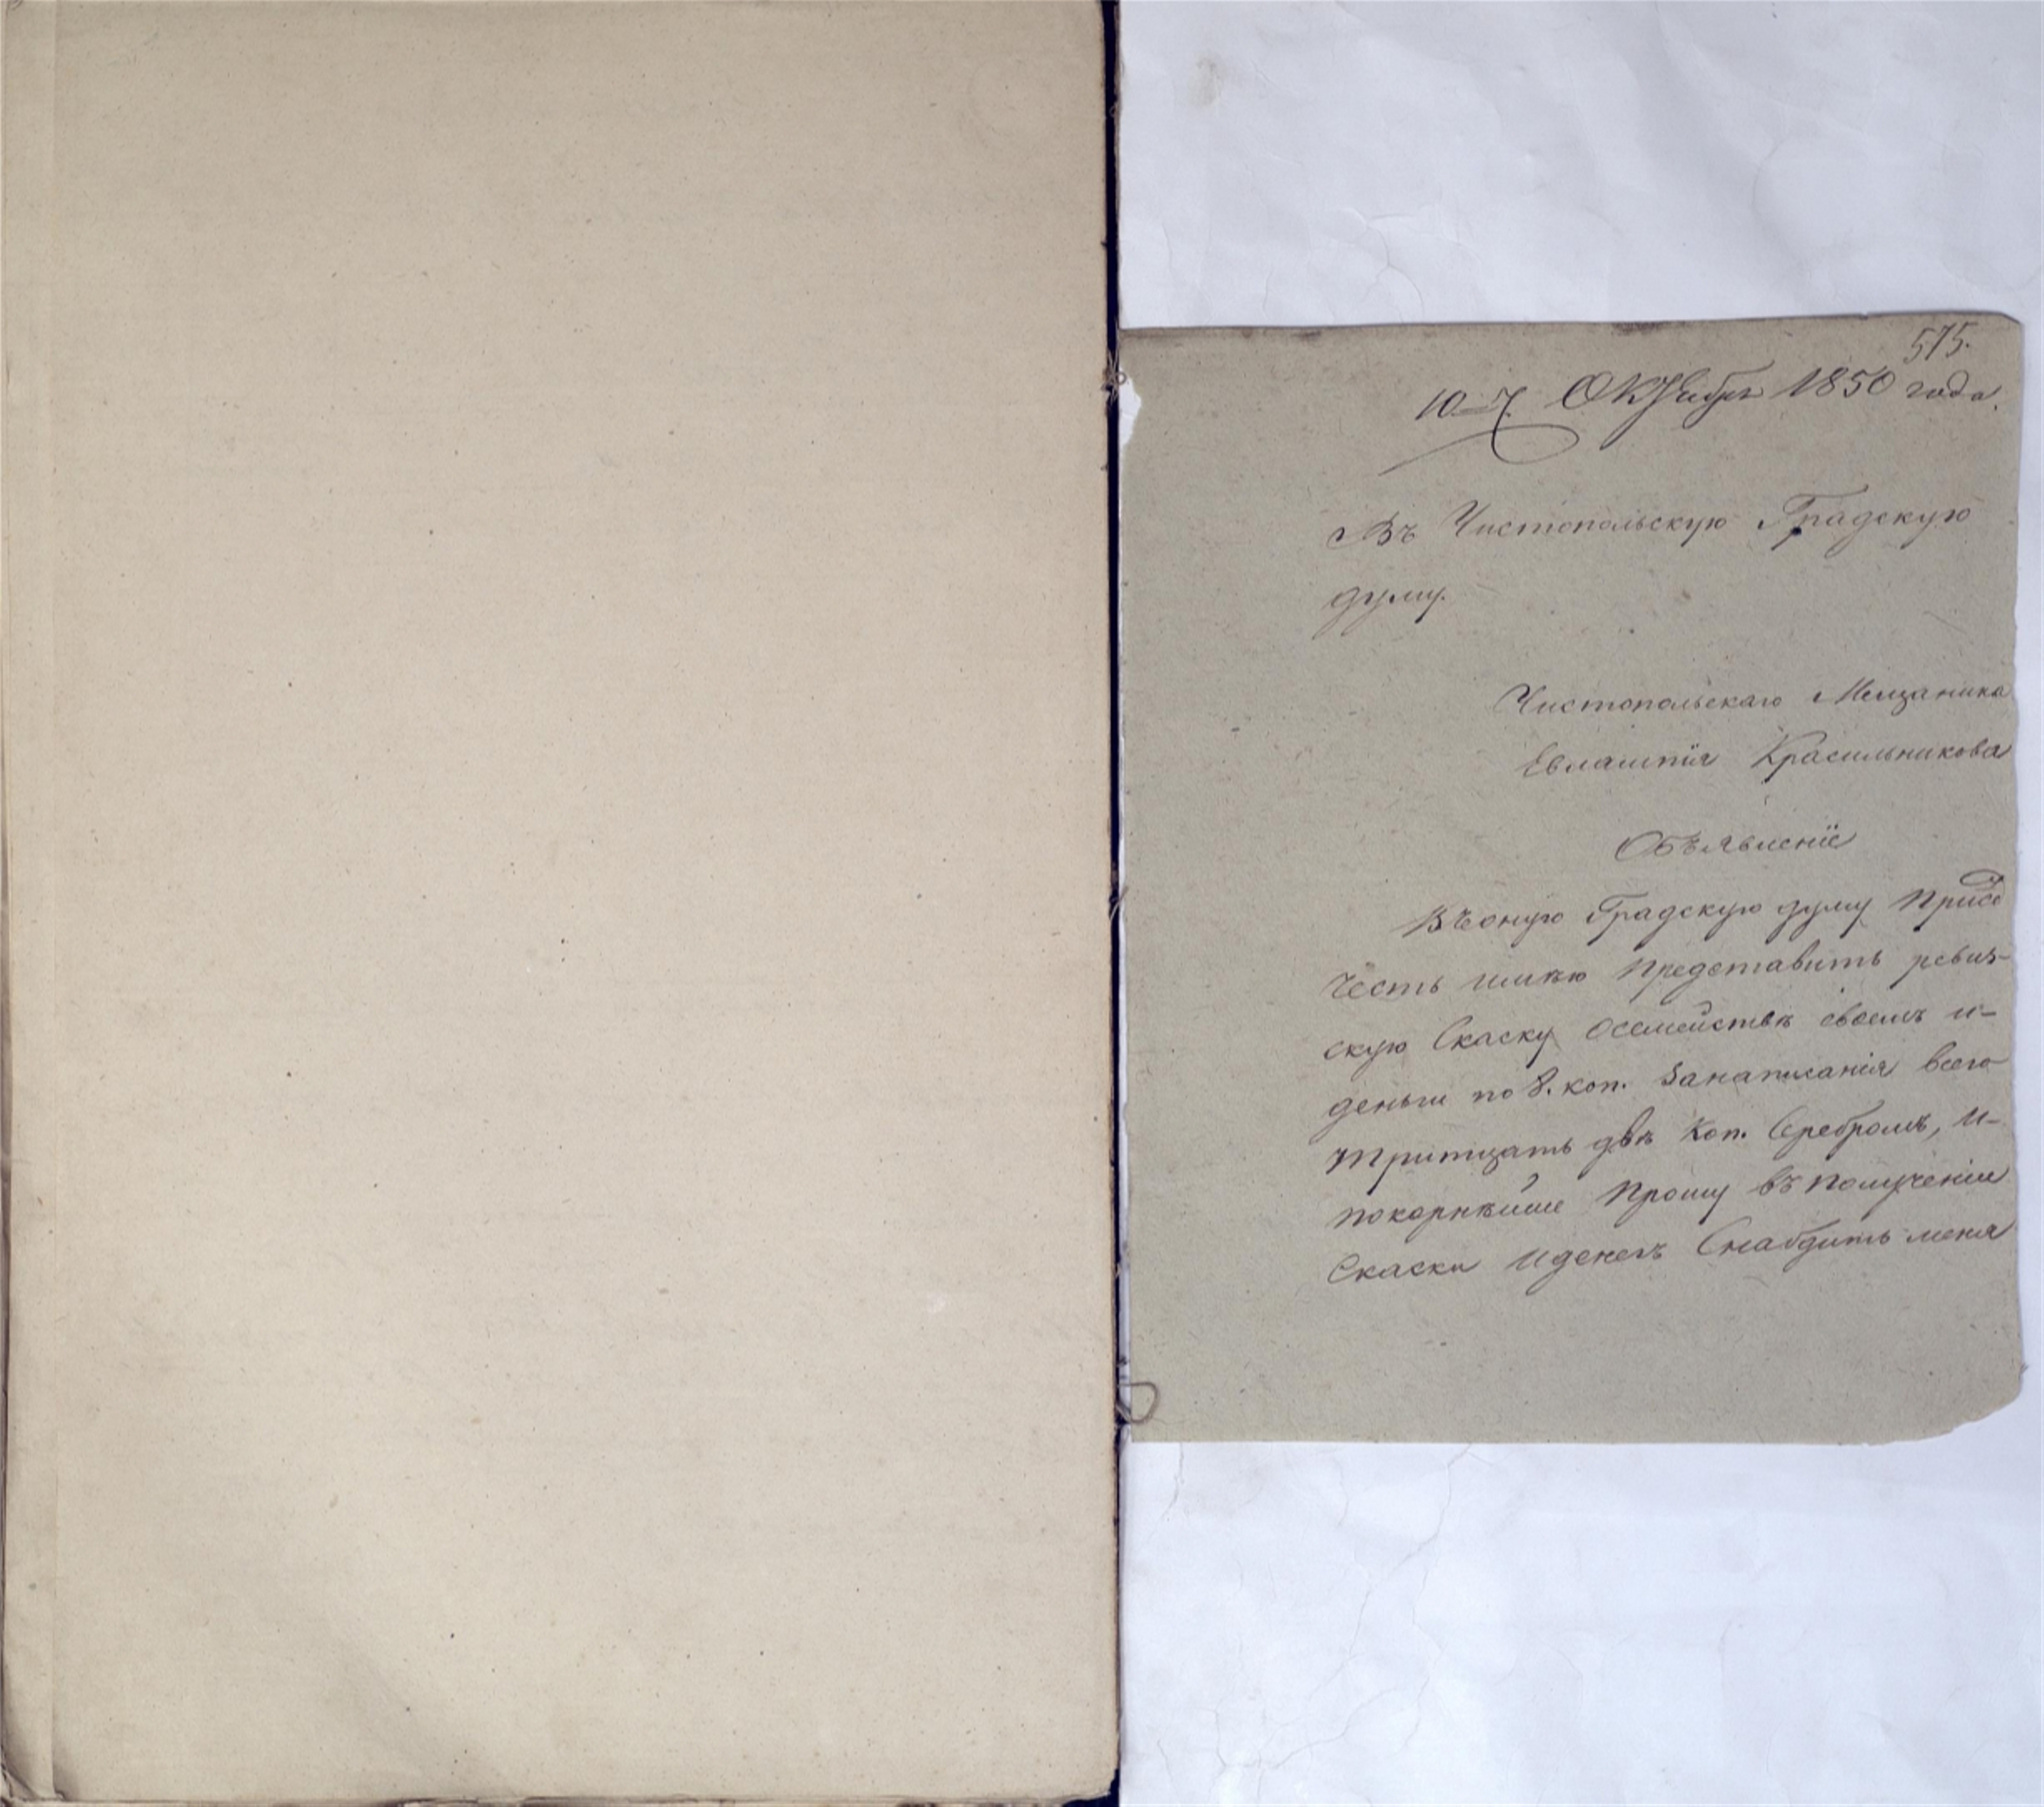 575.
10 7. Октября 1850 года.
Въ Чистопольскую Градскую
думу.
Чистопольскаго Мещанина
Евлампія Красильникова
Объявленіе
Въоную Градскую думу При семъ
Честь имѣю Представить ревиз-
скую Скаску Осемействѣ своемъ и-
деньги по 8. коп. Занаписанія всего
тритцать двѣ Коп. Серебромъ, и-
покорнѣйше Прошу въ получении
Скаски иденегъ Снабдить меня